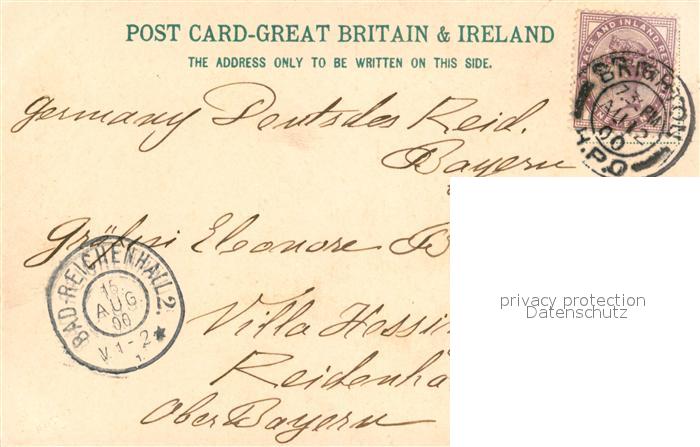 POST CARD-GREAT BRITAIN & IRELAND
THE ADDRESS ONLY TO BE WRITTEN ON THIS SIDE.
BRIGHTON
AU 12
00
H.P.O
Germany Deutsches Reich.
Bayern
Gräfin Eleonore B
Villa Hessin
Reichenha
Ober Bayern
BAD-REICHENHALL 2.
15
AUG
00
V.1-2
privacy protection
Datenschutz